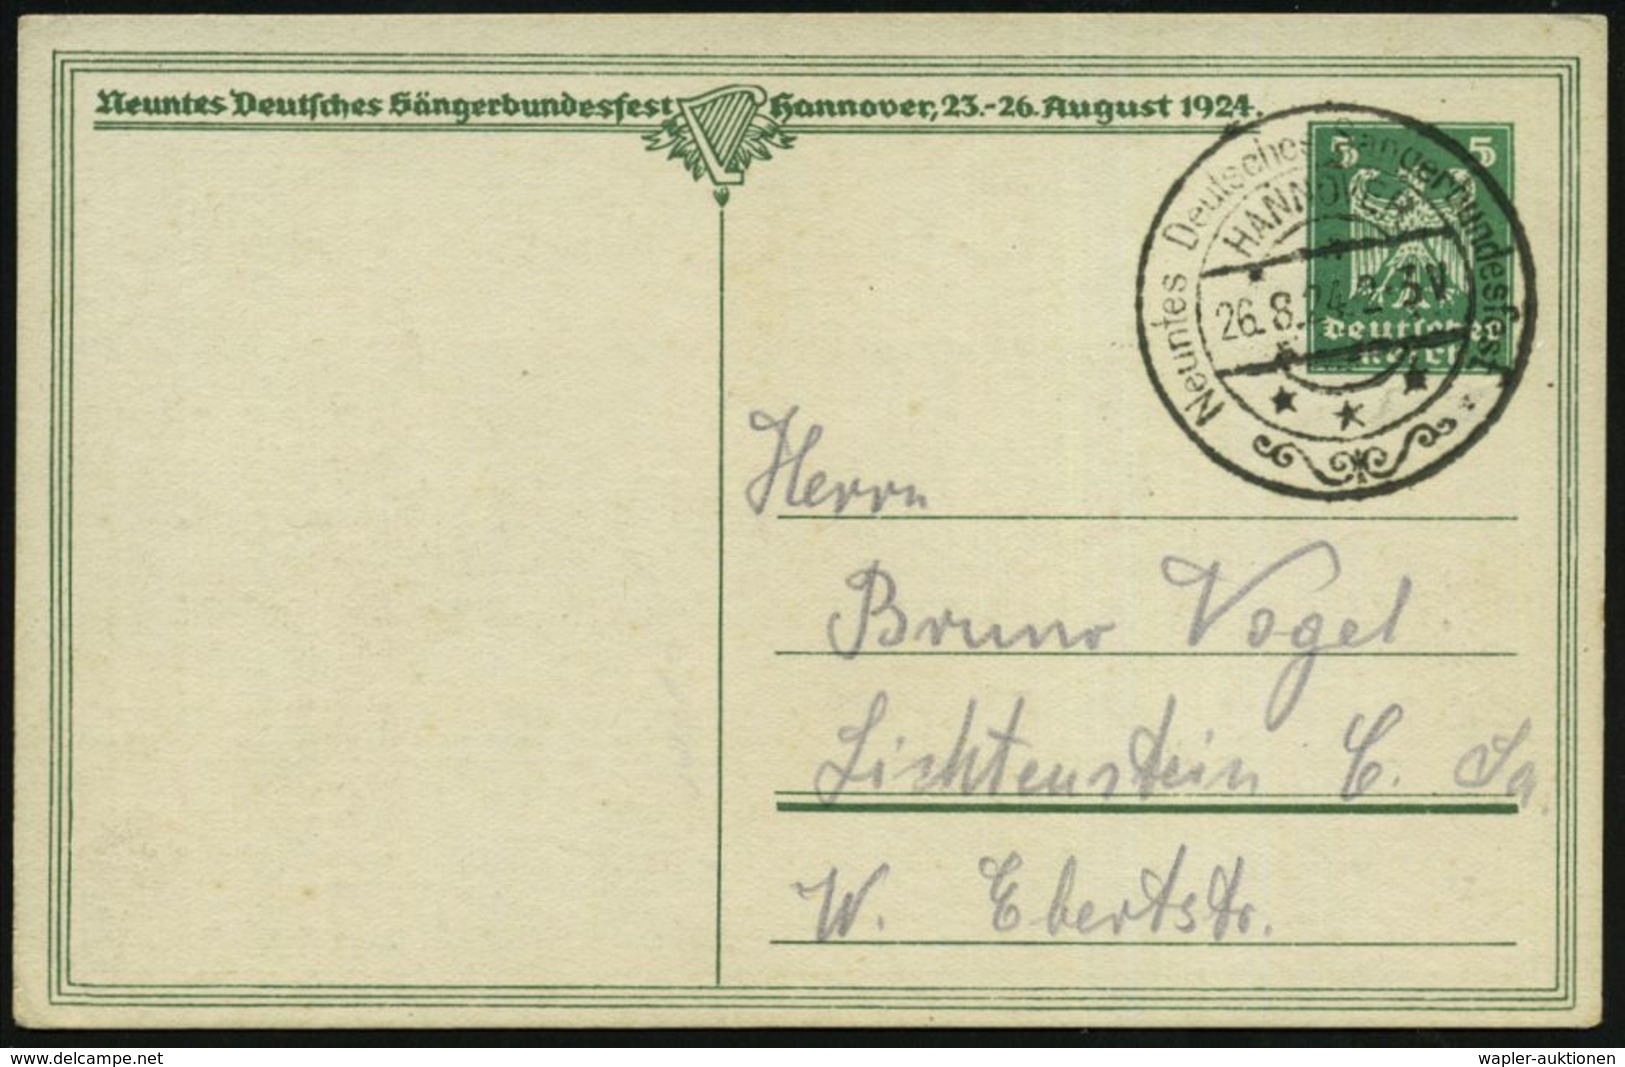 Neuntes Deutsches Sängerbundesfest Hannover, 23.-26. August 1924.
5 5
Deutsches Reich
Neuntes Deutsches Sängerbundesfest
HANNOVER
26.8.24.2-3V
Herrn
Bruno Vogel
Lichtenstein C. Sa.
W. Ebertstr.
www.delcampe.net
wapler-auktionen